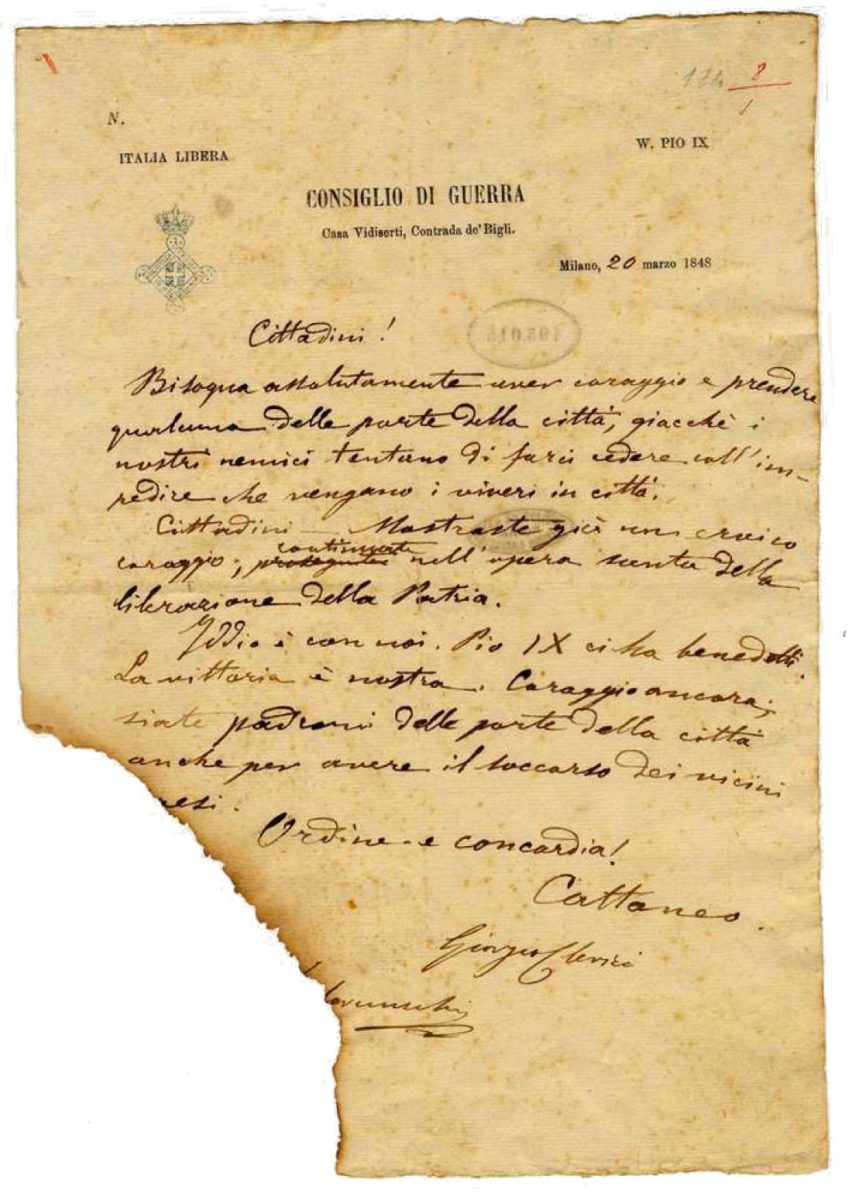 174 8/1
N.
ITALIA LIBERA
W. PIO IX
CONSIGLIO DI GUERRA
Casa Vidiserti, Contrada de' Bigli.
Milano, 20 marzo 1848
Cittadini!
Bisogna assolutamente aver coraggio e prendere
qualcuna delle porte della città, giacchè i
nostri nemici tentano di farci cedere coll'im-
pedire che vengano i viveri in città.
Cittadini — Mostraste già un eroico
coraggio; proseguite continuate nell'opera santa della
liberazione della Patria.
Iddio è con noi. Pio IX ci ha benedetti.
La vittoria è nostra. Coraggio ancora;
siate padroni delle porte della città
anche per avere il soccorso dei vicini
esi.
Ordine e concordia!
Cattaneo.
Giorgio Clerici